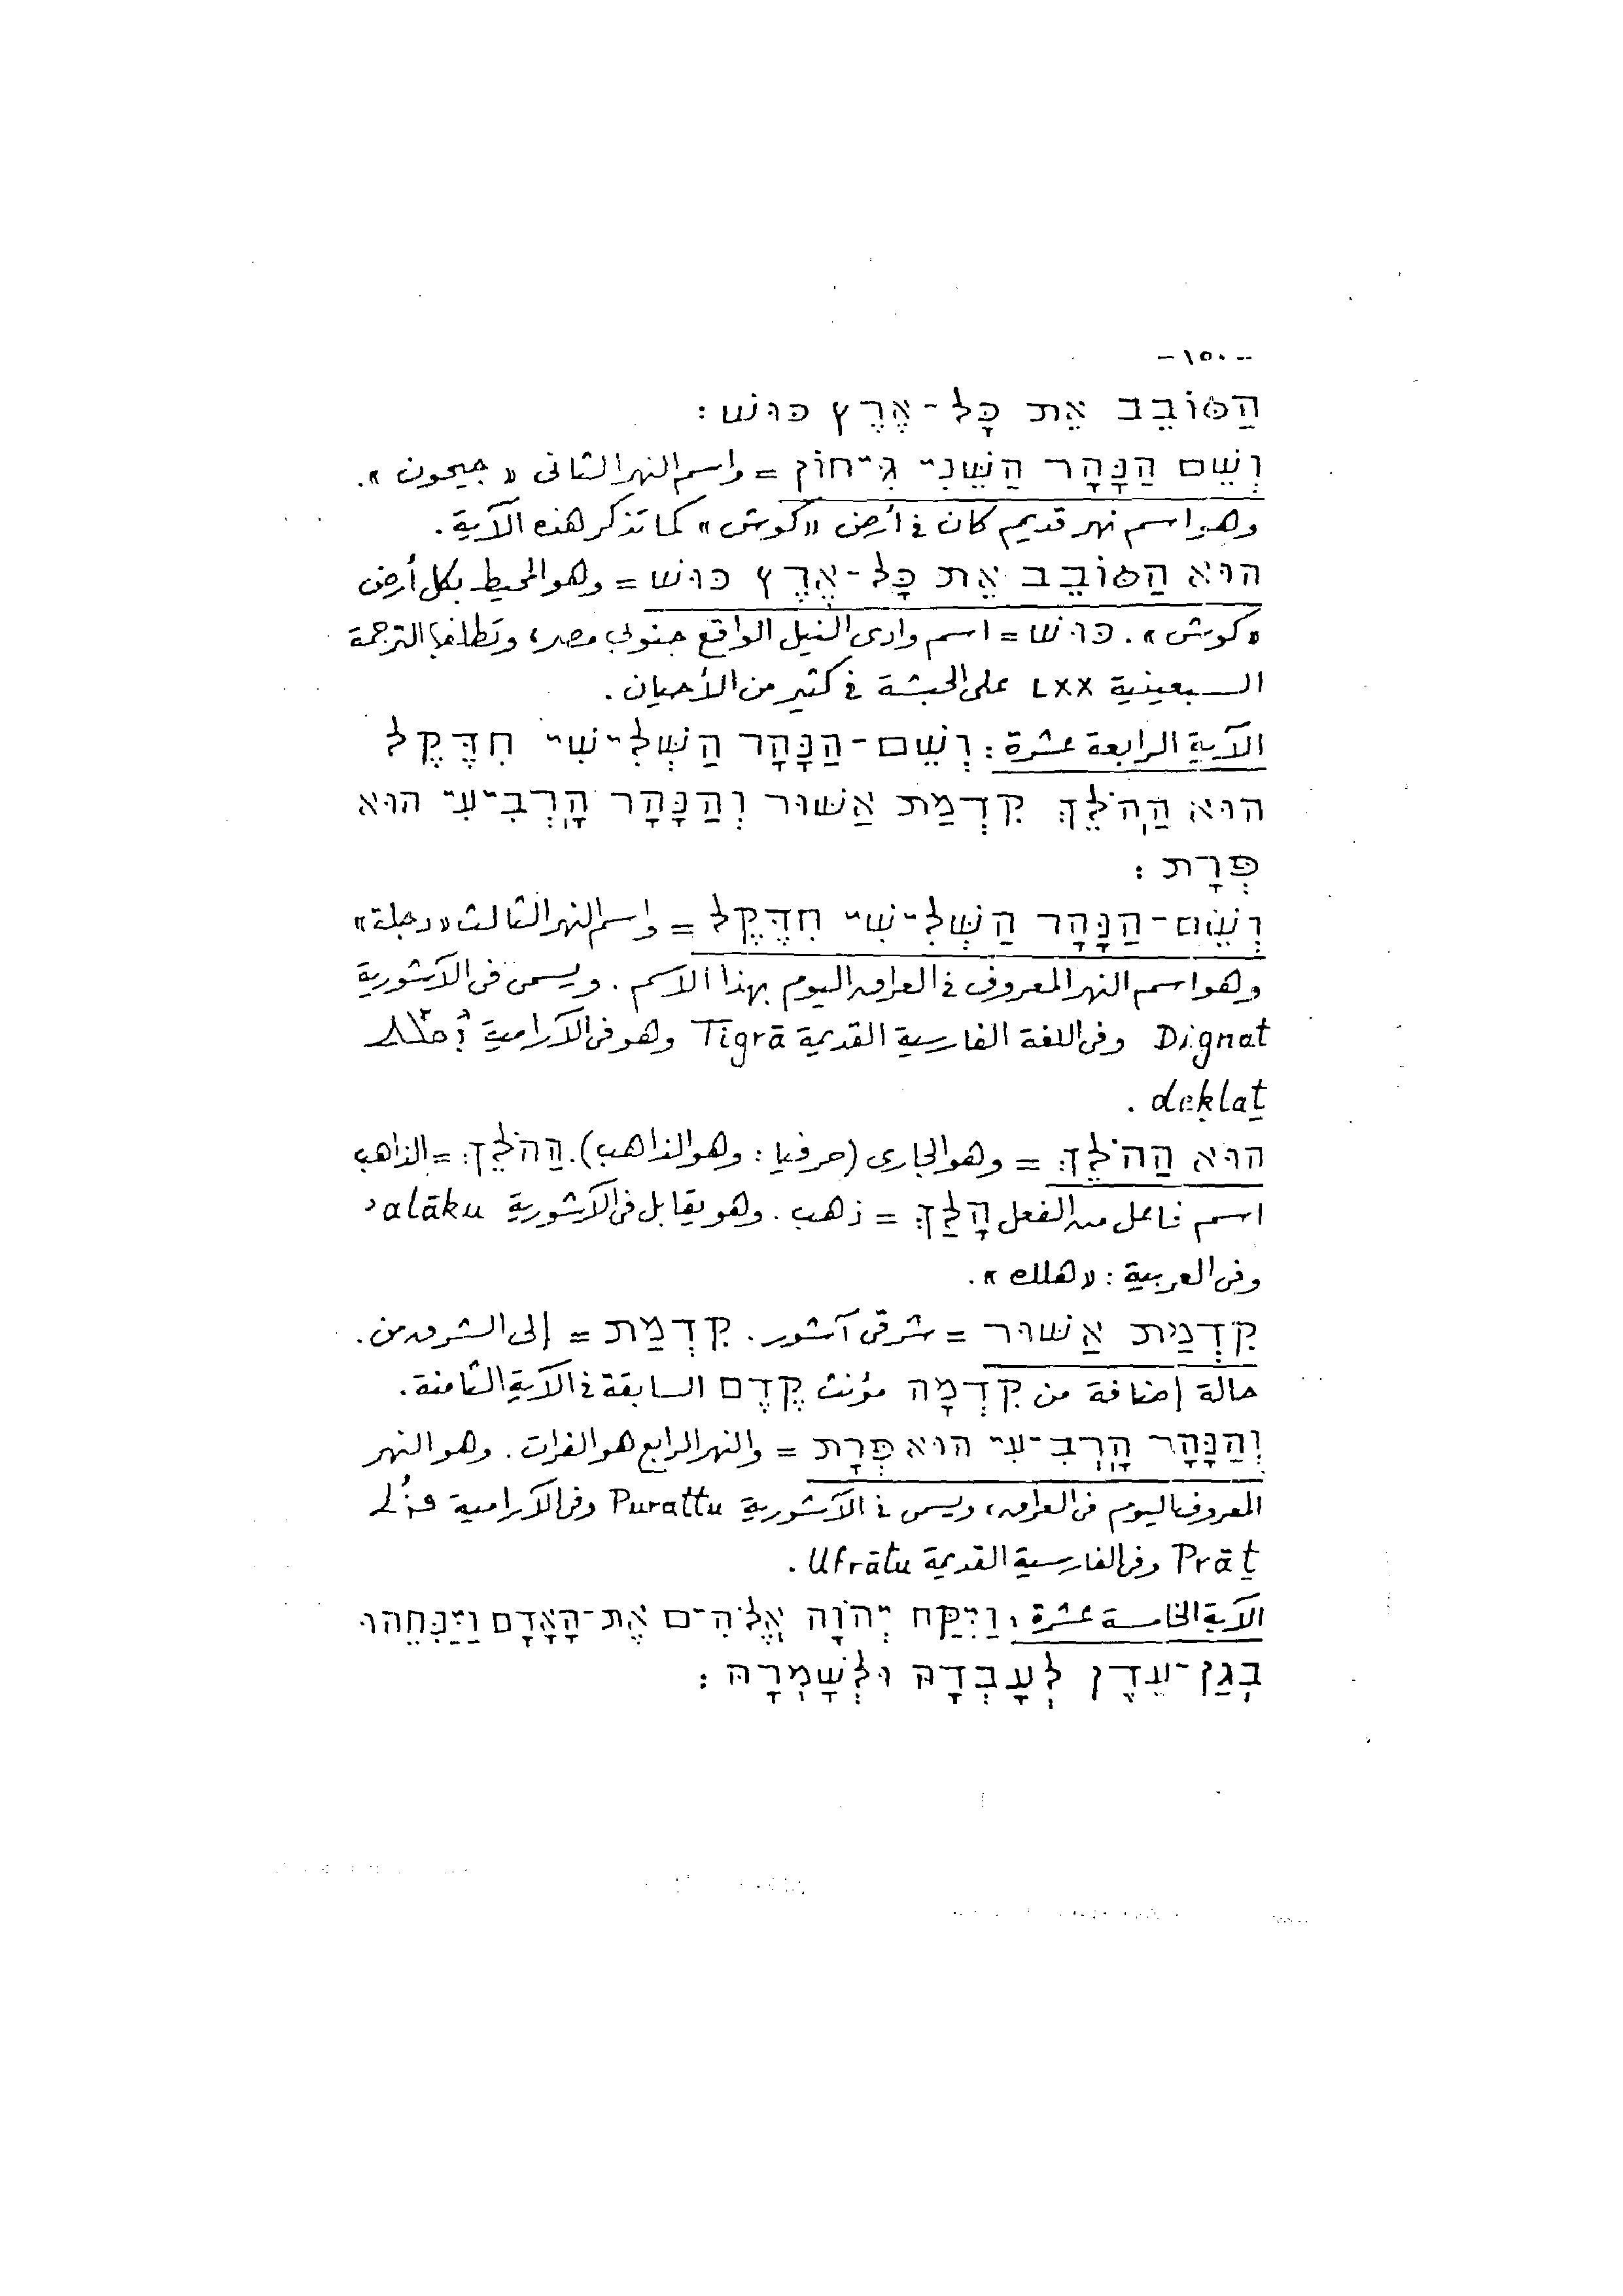 -١٥٠-
הַסּוֹבֵב אֵת כָּל-אֶרֶץ כּוּשׁ:
וְשֵׁם הַנָּהָר הַשֵּׁנִי גִּיחוֹן = واسم النهر الثانى « جيحون ».
وهو اسم نهر قديم كان فى أرض «كوش» كما تذكر هذه الآية.
הוּא הַסּוֹבֵב אֵת כָּל-אֶרֶץ כּוּשׁ = وهو المحيط بكل أرض
«كوش». כּוּשׁ = اسم وادى النيل الواقع جنوبى مصر، وتطلقها الترجمة
السبعينية LXX على الحبشة فى كثير من الأحيان.
الآية الرابعة عشرة: וְשֵׁם-הַנָּהָר הַשְּׁלִישִׁי חִדֶּקֶל
הוּא הַהֹלֵךְ קִדְמַת אַשּׁוּר וְהַנָּהָר הָרְבִיעִי הוּא
פְּרָת:
וְשֵׁם-הַנָּהָר הַשְּׁלִישִׁי חִדֶּקֶל = واسم النهر الثالث «دجلة»
وهو اسم النهر المعروف فى العراق اليوم بهذا الاسم. ويسمى فى الآشورية
Dignat وفى اللغة الفارسية القديمة Tigrā وهو فى الآرامية
deḳlaṯ.
הוּא הַהֹלֵךְ = وهو الجارى (حرفيا: وهو الذاهب). הַהֹלֵךְ = الذاهب
اسم فاعل من الفعل הָלַךְ = ذهب. وهو يقابل فى الآشورية alāku
وفى العربية: «هلك».
קִדְמַת אַשּׁוּר = شرقى آشور. קִדְמַת = إلى الشرق من.
حالة إضافة من קִדְמָה مؤنث קֶדֶם السابقة فى الآية الثامنة.
וְהַנָּהָר הָרְבִיעִי הוּא פְּרָת = والنهر الرابع هو الفرات. وهو النهر
المعروف اليوم فى العراق، ويسمى فى الآشورية Purattu وفى الآرامية
Prāṯ وفى الفارسية القديمة Ufrātu.
الآية الخامسة عشرة: וַיִּקַּח יְהוָֹה אֱלֹהִים אֶת-הָאָדָם וַיַּנִּחֵהוּ
בְגַן-עֵדֶן לְעָבְדָהּ וּלְשָׁמְרָהּ: